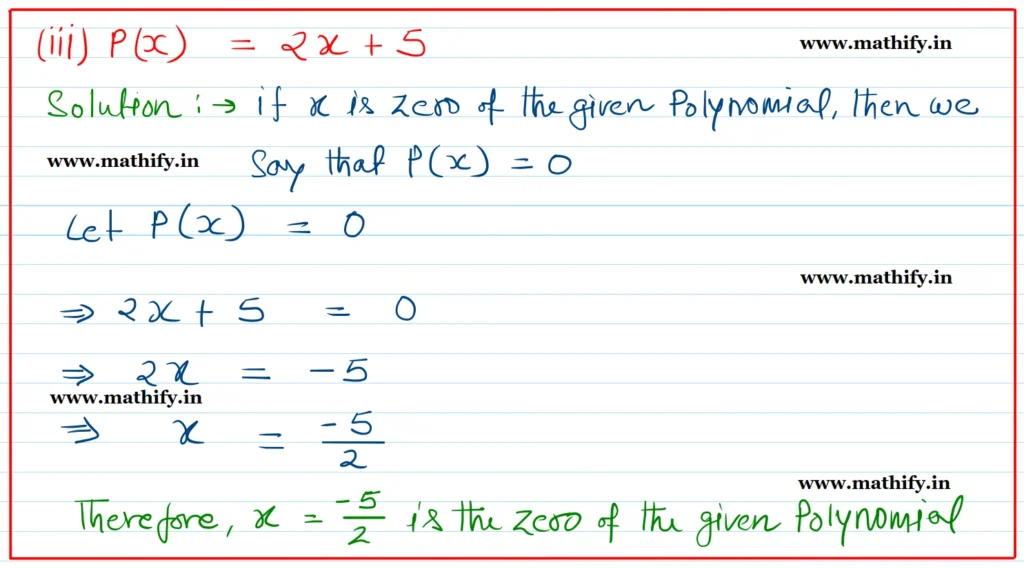 (iii) P(x) = 2x + 5 www.mathify.in
Solution :→ if x is zero of the given Polynomial, then we
www.mathify.in say that P(x) = 0
Let P(x) = 0
www.mathify.in
⇒ 2x + 5 = 0
⇒ 2x = -5
www.mathify.in
⇒ x = -5/2
www.mathify.in
Therefore, x = -5/2 is the zero of the given Polynomial